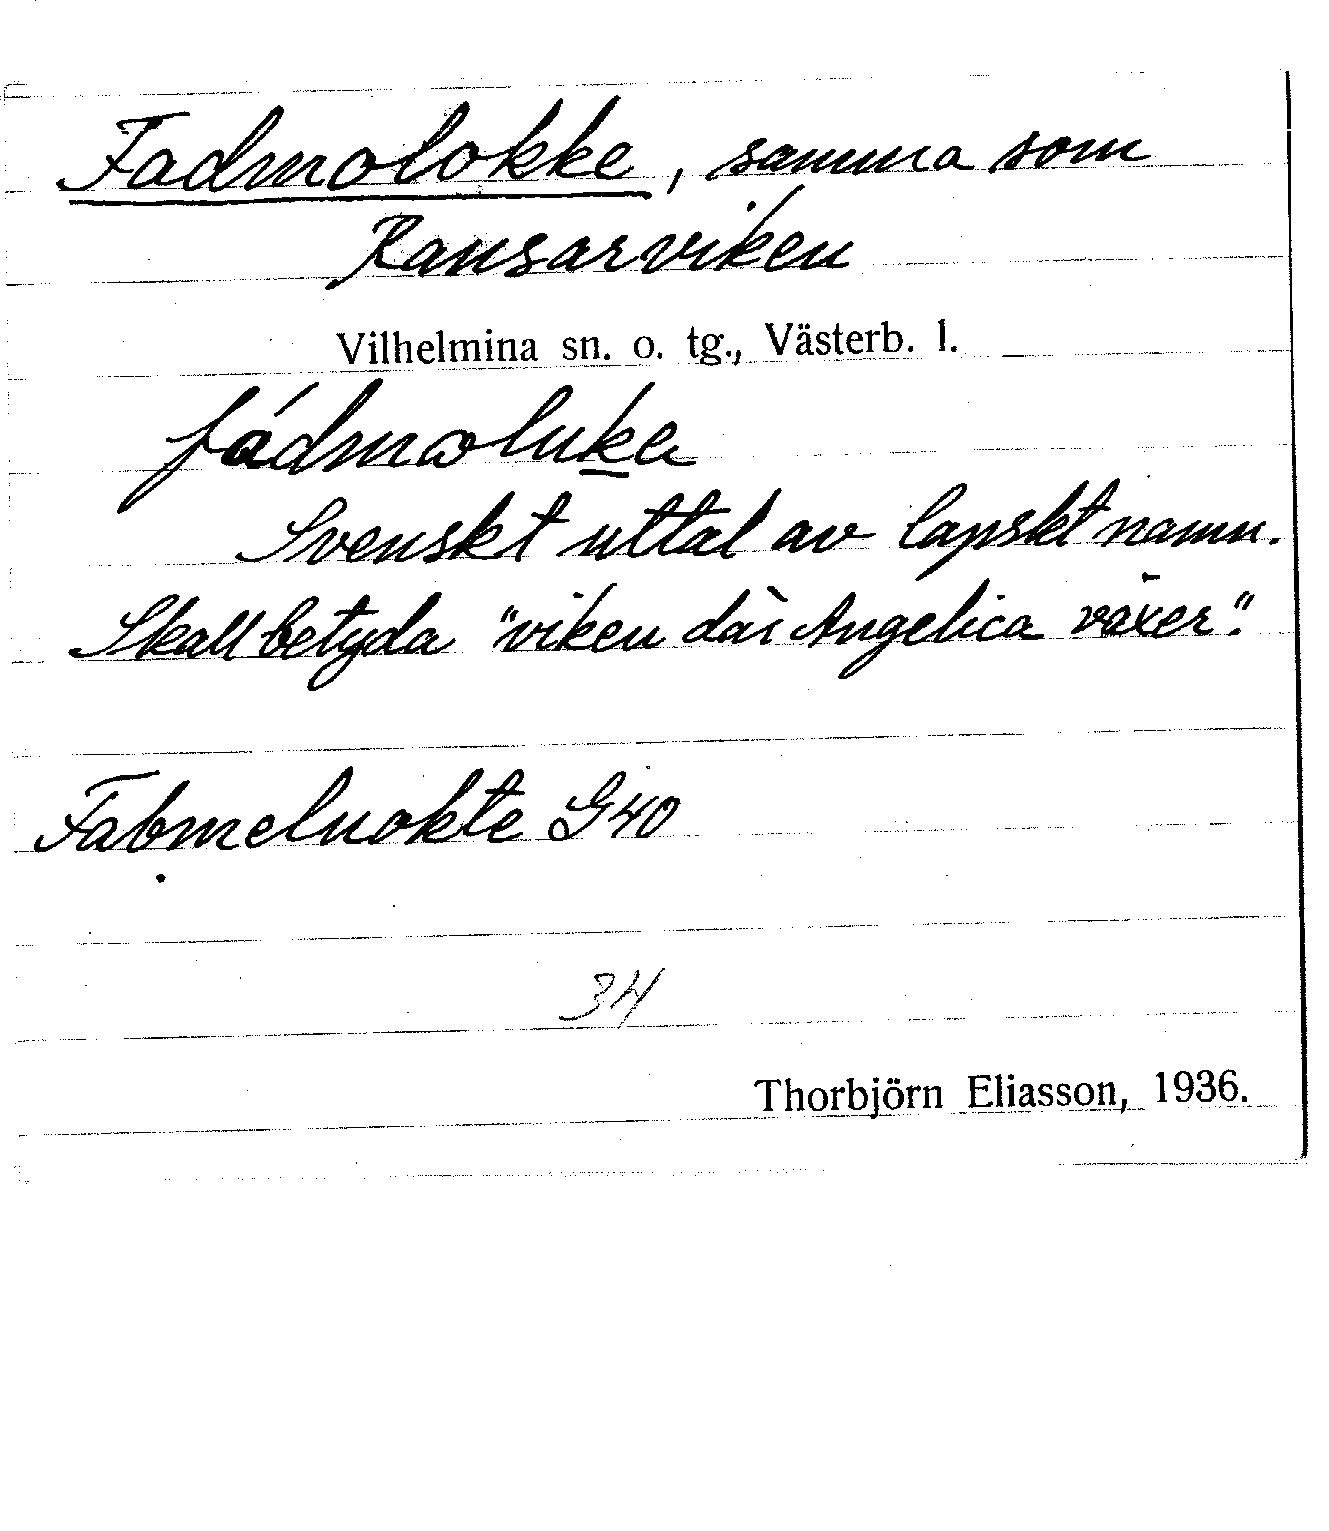 Fadmolokke, samma som
Ransarviken
Vilhelmina sn. o. tg., Västerb. l.
fádmoluka
Svenskt uttal av lapskt namn.
Skall betyda "viken där Angelica växer".
Fabmeluokte G40
34
Thorbjörn Eliasson, 1936.